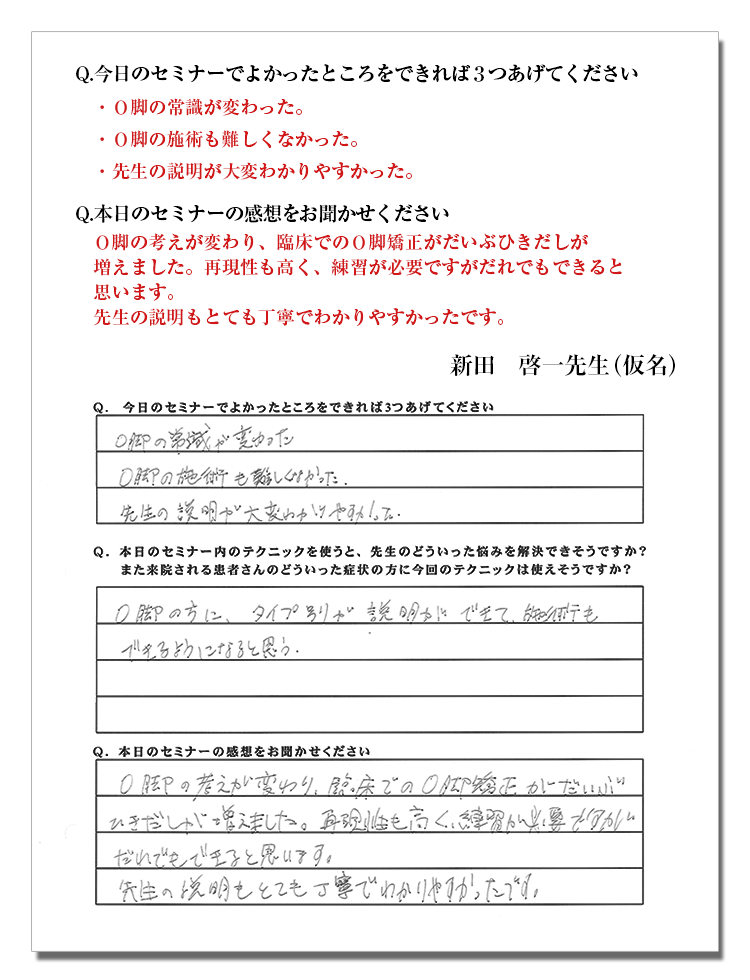 Q.今日のセミナーでよかったところをできれば３つあげてください
・Ｏ脚の常識が変わった。
・Ｏ脚の施術も難しくなかった。
・先生の説明が大変わかりやすかった。
Q.本日のセミナーの感想をお聞かせください
Ｏ脚の考えが変わり、臨床でのＯ脚矯正がだいぶひきだしが
増えました。再現性も高く、練習が必要ですがだれでもできると
思います。
先生の説明もとても丁寧でわかりやすかったです。
新田　啓一先生(仮名)
Q.　今日のセミナーでよかったところをできれば3つあげてください
O脚の常識が変わった
O脚の施術も難しくなかった.
先生の説明が大変わかりやすかった.
Q. 本日のセミナー内のテクニックを使うと、先生のどういった悩みを解決できそうですか?
また来院される患者さんのどういった症状の方に今回のテクニックは使えそうですか?
O脚の方に、タイプ別が説明ができて、施術も
できるようになると思う.
Q. 本日のセミナーの感想をお聞かせください
O脚の考えが変わり、臨床でのO脚矯正がだいぶ
ひきだしが増えました。再現性も高く、練習が必要ですが
だれでもできると思います。
先生の説明もとても丁寧でわかりやすかったです。